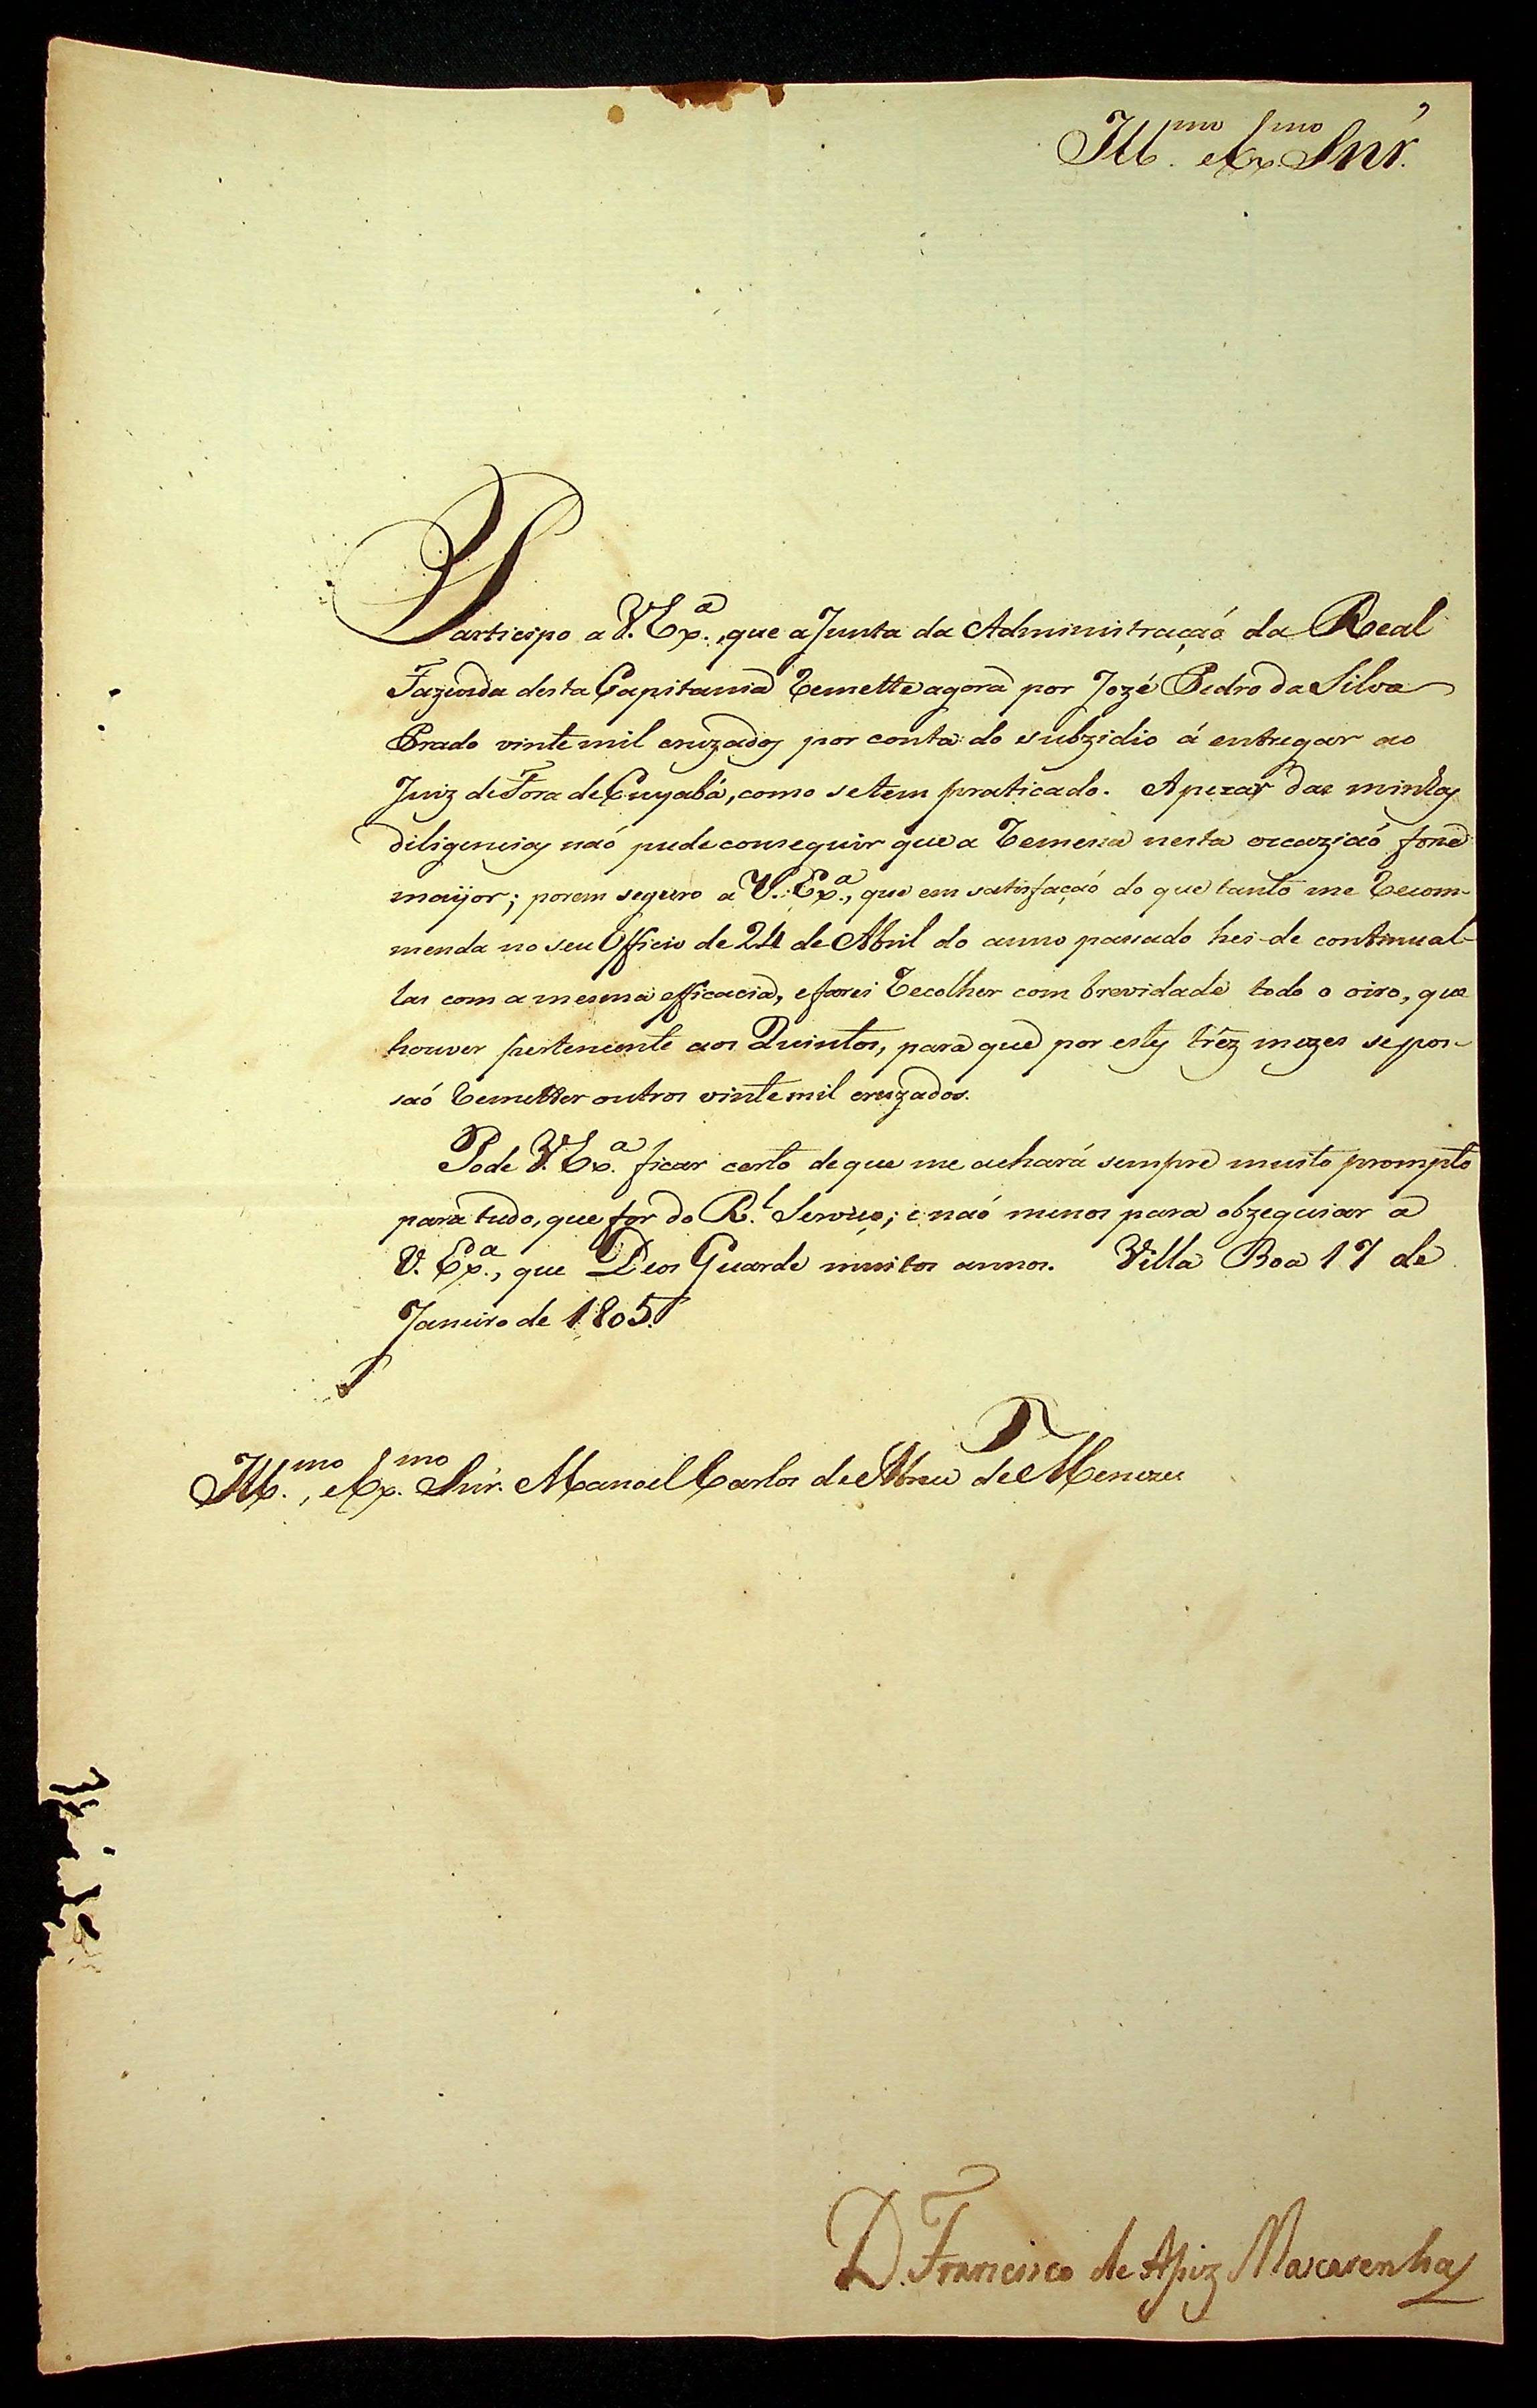 Ill.mo e Ex.mo Snr.
Participo a V. Ex.a, que a Junta da Administraçaõ da Real
Fazenda desta Capitania Remette agora por Jozé Pedro da Silva
Prado vinte mil cruzados por conta do subzidio á entregar ao
Juiz de Fora de Cuyabá, como se tem praticado. Apezar das minhas
diligencias naõ pude conseguir que a Remessa nesta occaziaõ fosse
mayor; porem seguro a V. Ex.a, que em satisfaçaõ do que tanto me Recom-
menda no seu Officio de 24 de Abril do anno passado hei-de continual-
las com a mesma efficacia, e farei Recolher com brevidade todo o oiro, que
houver pertencente aos Quintos, para que por estes trez mezes se pos-
saõ Remetter outros vinte mil cruzados.
Pode V. Ex.a ficar certo de que me achará sempre muito prompto
para tudo, que for do R.l Serviço; e naõ menos para obzequiar a
V. Ex.a, que Deos Guarde muitos annos. Villa Boa 17 de
Janeiro de 1805.
Ill.mo, e Ex.mo Snr. Manoel Carlos de Abreu de Menezes
D. Francisco de Assiz Mascarenhas